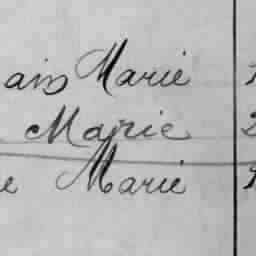 ais Marie
Marie
e Marie